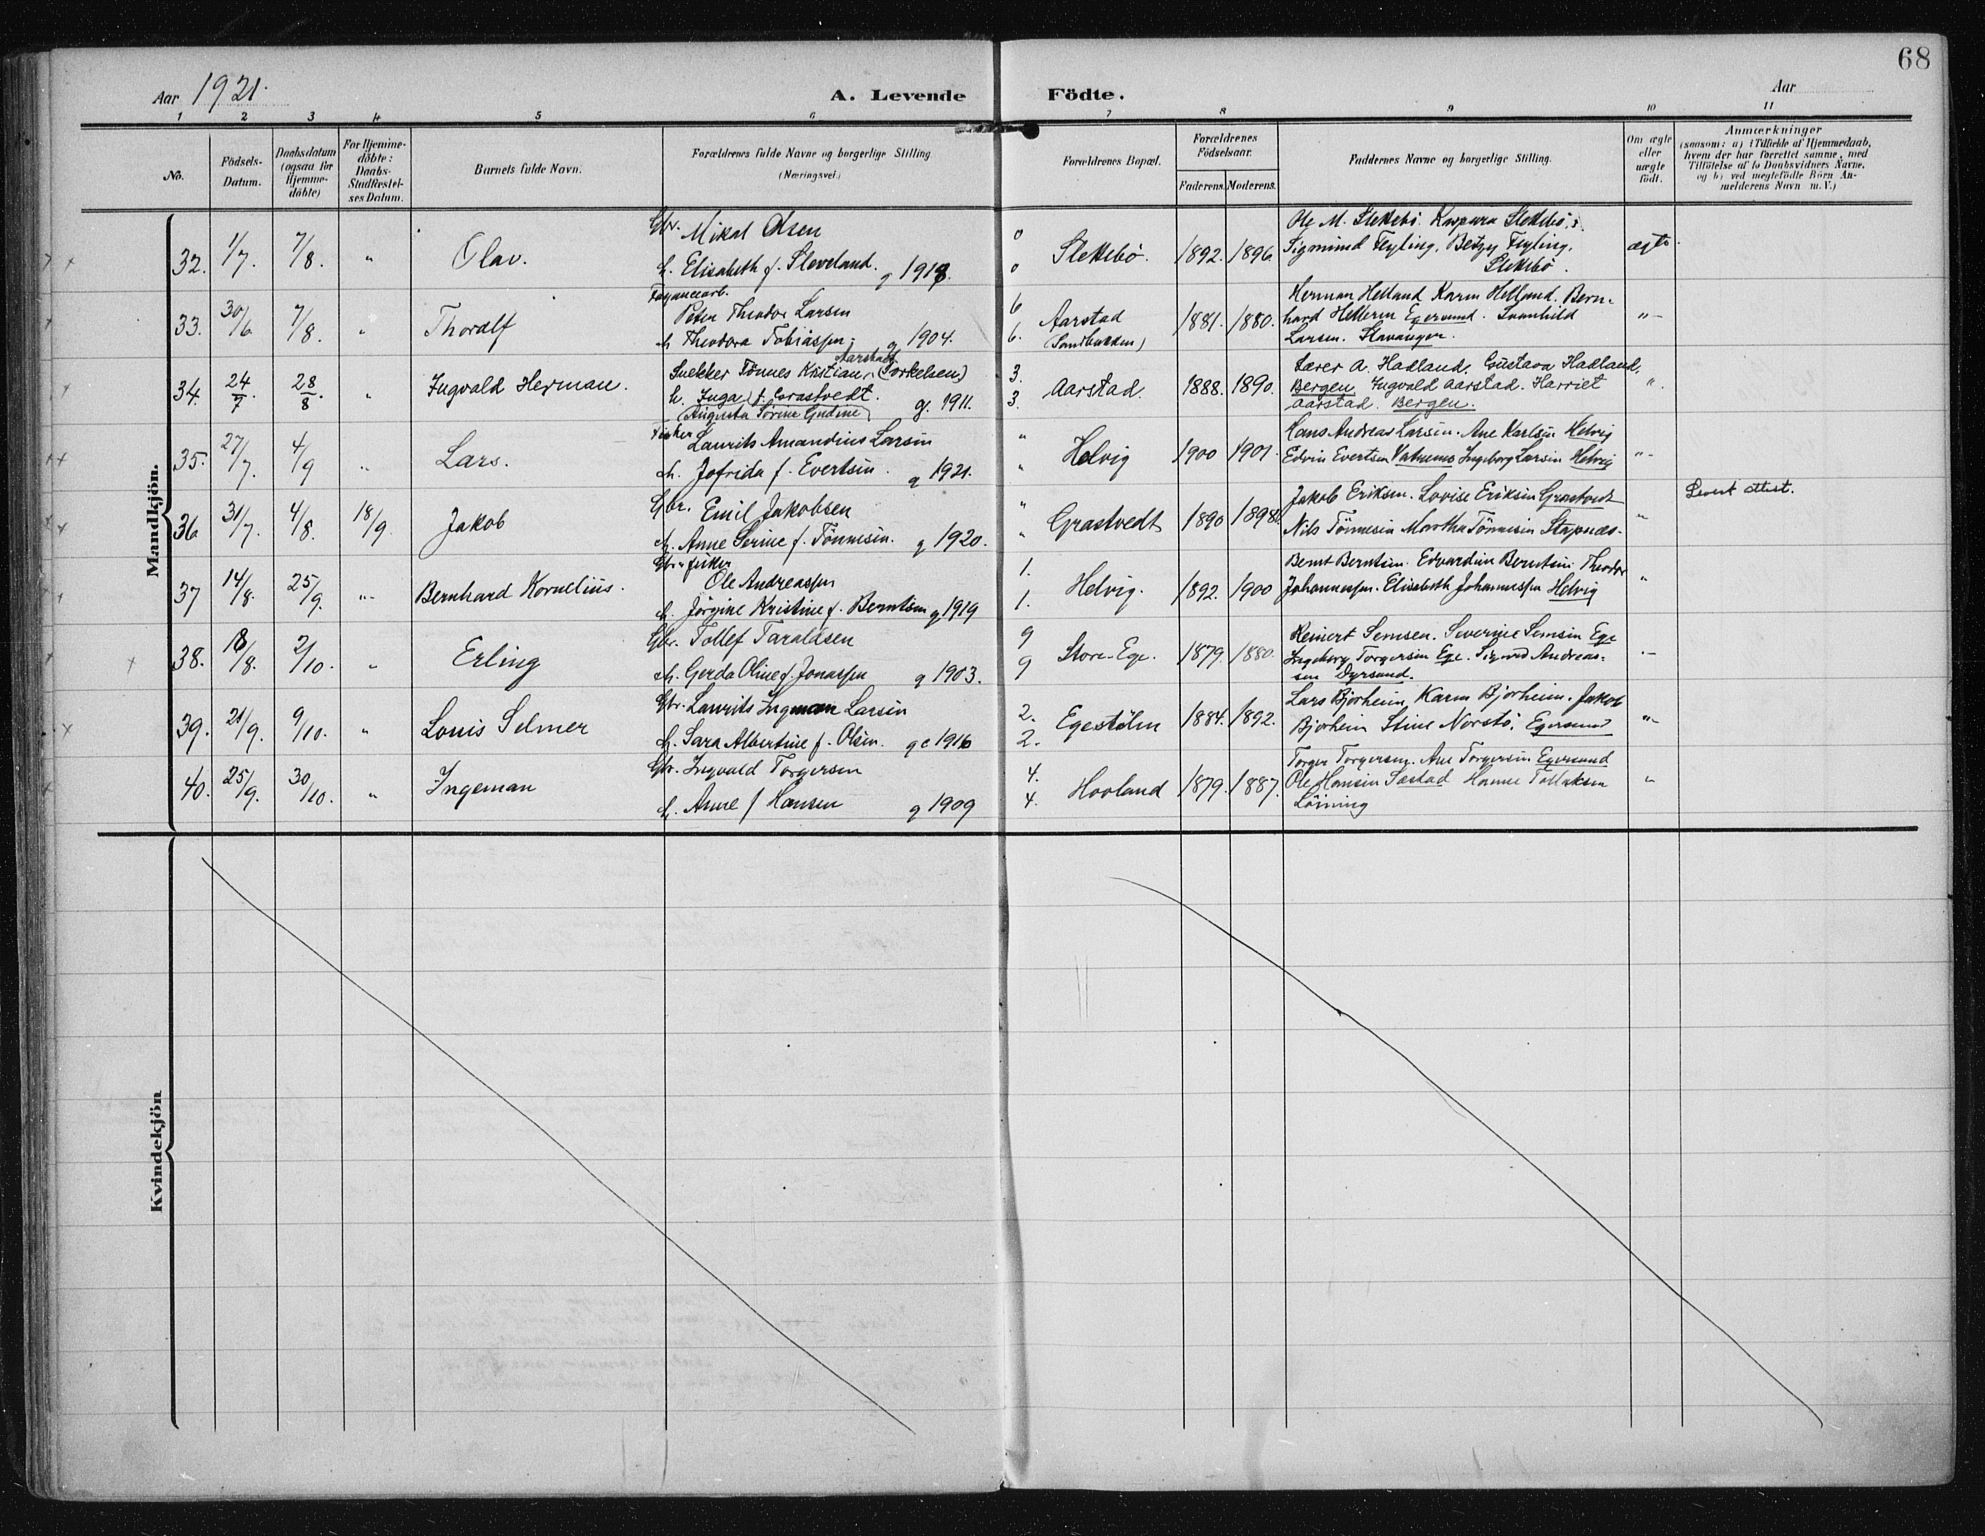 68
Aar 1921.
A. Levende Födte.
Aar
1 2 3 4 5 6 7 8 9 10 11
No.
Födsels-
Datum.
Daabsdatum
(ogsaa for
Hjemme-
döbte)
For Hjemme-
döbte:
Daabs-
Stadfæstel-
ses Datum.
Barnets fulde Navn.
Forældrenes fulde Navne og borgerlige Stilling
(Næringsvei.)
Forældrenes Bopæl.
Forældrenes
Födselsaar.
Faderens. Moderens.
Faddernes Navne og borgerlige Stilling.
Om ægte
eller
uægte
födt.
Anmærkninger
(saasom: a) i Tilfælde af Hjemmedaab,
hvem der har forrettet samme, med
Tilföielse af to Daabsvidners Navne,
og b) ved uegtefödte Börn An-
melderens Navn m. V.)
Mandkjön.
32. 1/7. 7/8. " Olav.
Gbr. Mikal Olsen
h. Elisabeth f. Sleveland. g 1918.
0
0
Slettebö. 1892. 1896.
Ole M. Slettebö. Kaspara Slettebö.
Sigmund Feyling, Betzy Feyling,
Slettebö.
ægte.
33. 30/6 7/8. " Thoralf
Fayancearb.
Peter Theodor Larsen
h Theodora Tobiassen; g 1904.
6
6.
Aarstad
(Sandbakken)
1881. 1880.
Herman Helland Karen Helland. Bern-
hard Egersund. Svanhild
Larsen. Stavanger.
"-
34. 24/7 28/8. " Ingvald Herman.
Aarstad
Snekker Tönnes Kristian (Torkelsen)
h. Inga f. Grastvedt. g. 1911.
(Augusta Sorine Gudine)
3.
3.
Aarstad. 1888. 1890.
Lærer A. Hadland. Gustava Hadland,
Bergen Ingvald Aarstad. Harriet
Aarstad. Bergen.
"
35. 27/7. 4/9 " Lars.
Fisker
Laurits Amandius Larsen
h. Jofrida f. Evertsen. g 1921.
"
"
Helvig 1900 1901.
Hans Andreas Larsen. Ane Karlsen Helvig
Edvin Evertsen Ingeborg Larsen Helvig
"-
36 31/7. 4/8. 18/9 Jakob
Gbr. Emil Jakobsen
h. Anne Serine f. Tönnesen. g 1920.
"
"
Grastvedt 1890 1898
Jakob Eriksen. Lovise Eriksen Grastvedt
Nils Tönnesen Martha Tönnesen Stapnæs-
"
Levert attest.
37 14/8. 25/9. " Bernhard Kornelius.
Gbr fisker
Ole Andreassen
h. Jörgine Kristine f. Berntsen g 1919
1.
1.
Helvig. 1892. 1900
Bernt Berntsen. Edvardine Berntsen Theodor
Johannessen. Elisabeth Johannessen Helvig
"
38. 18/8. 2/10. " Erling
Gbr. Tollef Taraldsen
h. Gerda Oline f. Jonassen g 1903.
9
9
Store-Ege. 1879. 1880.
Reinert Semsen. Severine Semsen Ege
Ingeborg Torgersen Ege. Sigurd Andreas-
sen Dyrsand.
"-
39. 21/9. 9/10. " Louis Selmer
Gbr. Laurits Ingman Larsen
h. Sara Albertine f. Olsen. g 1916
2.
2.
Egestölen 1884. 1892.
Lars Bjorheim, Karen Bjorheim. Jakob
Bjorheim Stine Norstö, Egersund
"-
40. 25/9. 30/10. " Ingeman
Gbr. Ingvald Torgersen
h. Anne f Hansen g 1909
4.
4.
Hovland 1879. 1887.
Torger Torgersen. Ane Torgersen Egersund
Ole Hansen Sæstad Hanne Tollaksen
Löining
"
Kvindekjön